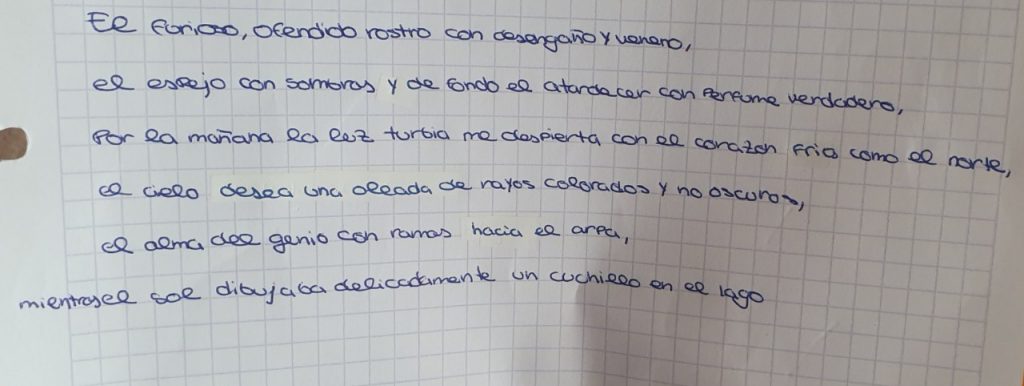 El furioso, ofendido rostro con desengaño y veneno,
el espejo con sombras y de fondo el atardecer con perfume verdadero,
Por la mañana la luz turbia me despierta con el corazón frío como el norte,
el cielo desea una oleada de rayos colorados y no oscuros,
el alma del genio con ramas hacia el arpa,
mientras el sol dibujaba delicadamente un cuchillo en el lago